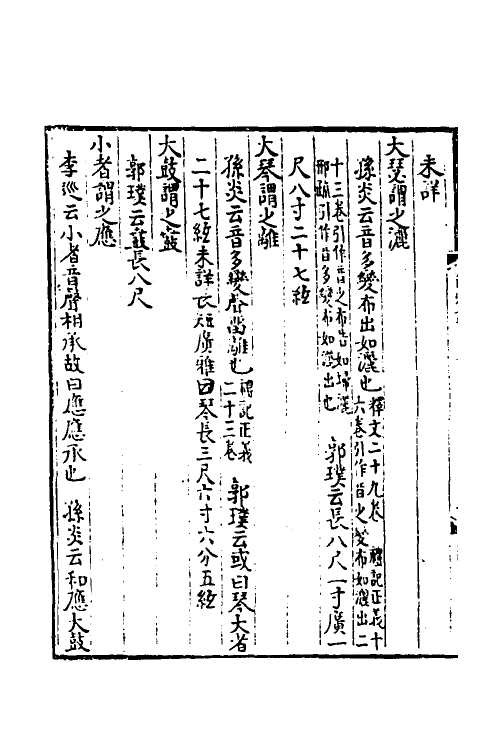 未詳
大瑟謂之灑
孫炎云音多變布出如灑也 釋文二十九卷 禮記正義十
六卷引作音之變布如灑出二
十三卷引作音之布告如埽灑
邢疏引作音多變布如灑出也 郭璞云長八尺一寸廣一
尺八寸二十七絃
大琴謂之離
孫炎云音多變聲留離也 禮記正義
二十三卷 郭璞云或曰琴大者
二十七絃未詳長短廣雅曰琴長三尺六寸六分五絃
大鼓謂之鼖
郭璞云鼖長八尺
小者謂之應
李巡云小者音聲相承故曰應應承也 孫炎云和應大鼓